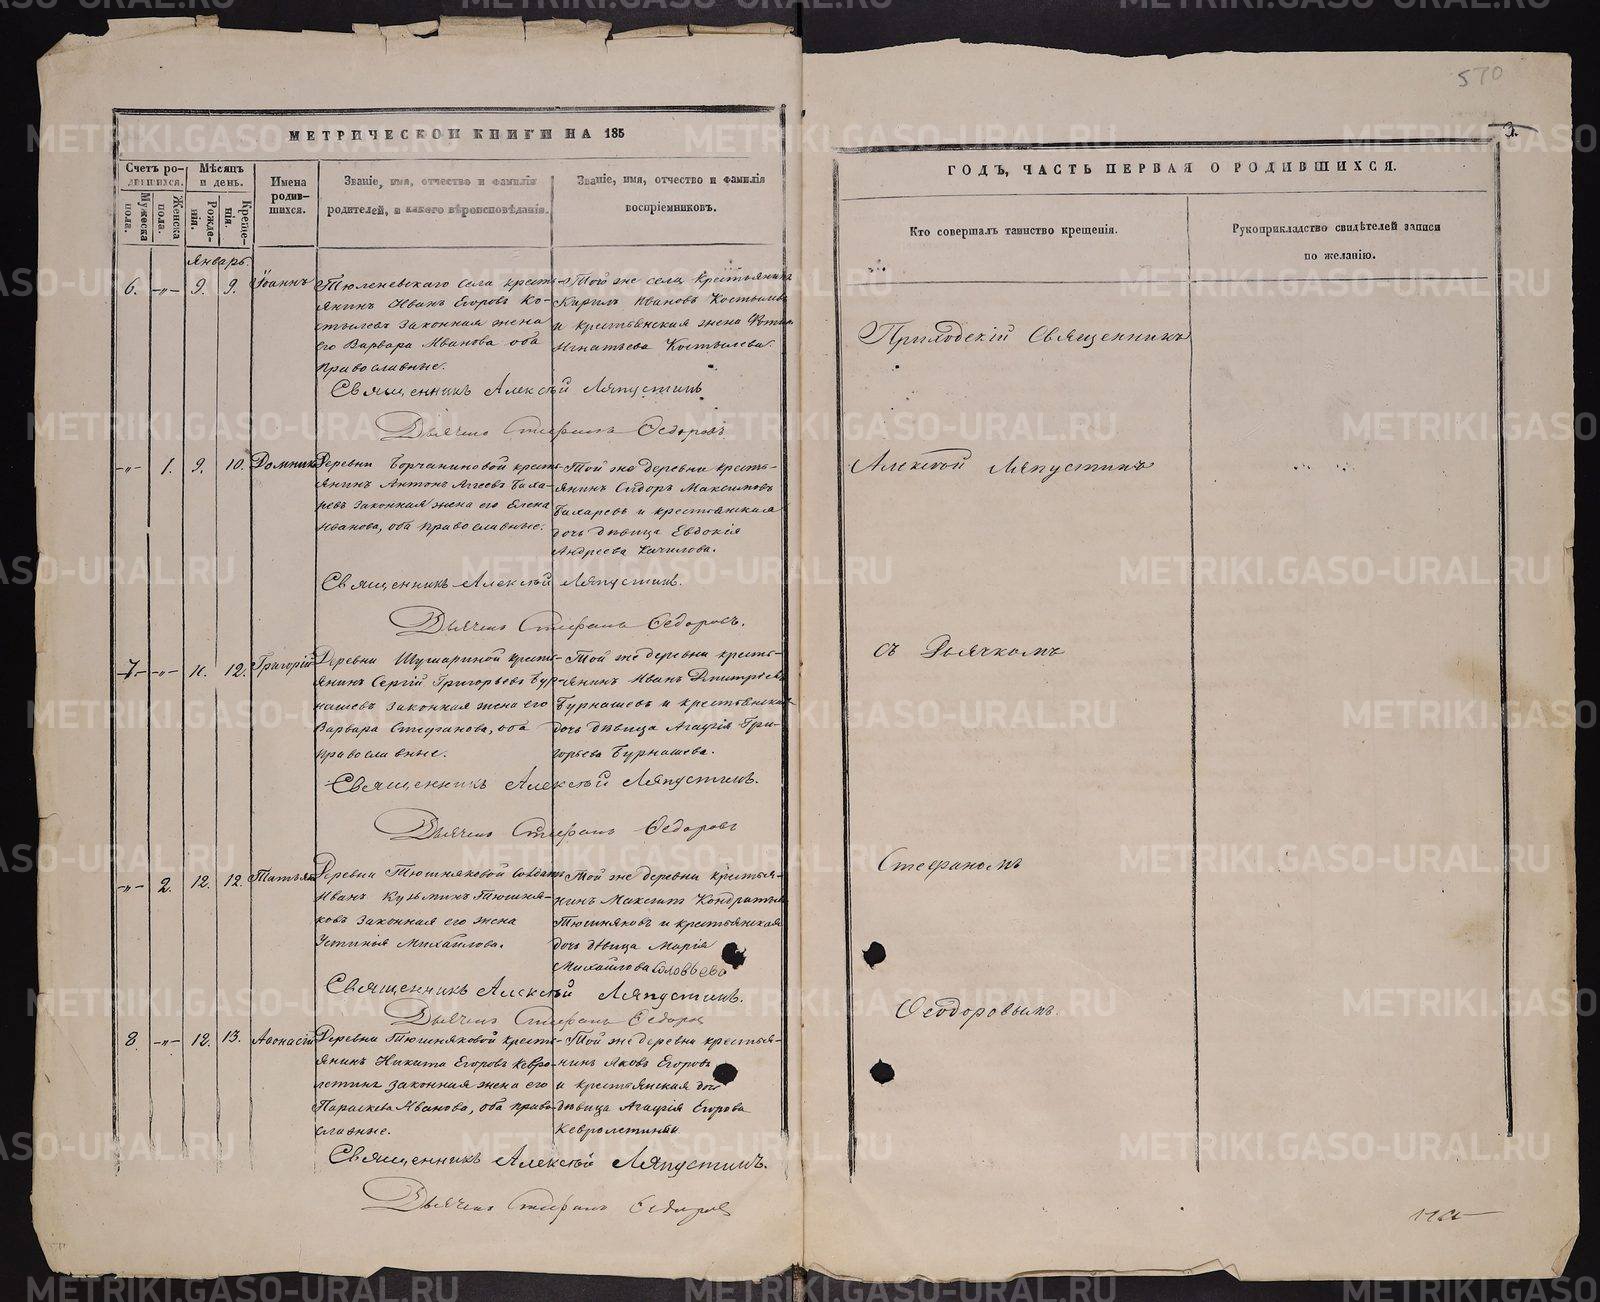 570
МЕТРИЧЕСКОЙ КНИГИ НА 185
Счетъ ро-
дившихся.
Мужеска пола.
Женска пола.
Мѣсяцъ
и день.
Рожде-
нія.
Креще-
нія.
Имена
родив-
шихся.
Званіе, имя, отчество и фамилія
родителей, и какого вѣроисповѣданія.
Званіе, имя, отчество и фамилія
воспріемниковъ.
Январь.
6. -„- 9. 9. Іоаннъ
Тюленевскаго села кресть-
янинъ Иванъ Егоровъ Ко-
стылевъ законная жена
его Варвара Иванова оба
православные.
Той же села крестьянинъ
Кирилъ Ивановъ Костылевъ
и крестьянская жена
Игнатьева Костылева.
Священникъ Алексѣй Ляпустинъ
Дьячекъ Стефанъ Ѳедоровъ
-„- 1. 9. 10. Домника
Деревни кресть-
янинъ Антонъ
законная жена его Елена
Иванова, оба православные.
Той же деревни кресть-
янинъ Сидоръ Максимовъ
и крестьянская
дочь дѣвица Евдокія
Андреева
Священникъ Алексѣй Ляпустинъ.
Дьячекъ Стефанъ Ѳедоровъ.
7. -„- 11. 12. Григорій
Деревни Шумариной кресть-
янинъ Сергій Григорьевъ Бур-
нашевъ законная жена его
Варвара Стефанова, оба
православные.
Той же деревни кресть-
янинъ Иванъ Дмитріевъ
Бурнашевъ и крестьянская
дочь дѣвица Агафія Гри-
горьева Бурнашева.
Священникъ Алексѣй Ляпустинъ.
Дьячекъ Стефанъ Ѳедоровъ
-„- 2. 12. 12. Татьяна
Деревни Тюшняковой солдатъ
Иванъ Кузьминъ Тюшня-
ковъ законная его жена
Устинія Михайлова.
Той же деревни крестья-
нинъ Максимъ Кондратьевъ
Тюшняковъ и крестьянская
дочь дѣвица Марія
Михайлова Соловьева
Священникъ Алексѣй Ляпустинъ.
Дьячекъ Стефанъ Ѳедоровъ
8. -„- 12. 13. Аѳонасій
Деревни Тюшняковой кресть-
янинъ Никита Егоровъ Кевро-
летинъ законная жена его
Параскева Иванова, оба право-
славные.
Той же деревни крестья-
нинъ Яковъ Егоровъ
и крестьянская дочь
дѣвица Агафія Егорова
Кевролетина
Священникъ Алексѣй Ляпустинъ.
Дьячекъ Стефанъ Ѳедоровъ
3.
ГОДЪ, ЧАСТЬ ПЕРВАЯ О РОДИВШИХСЯ.
Кто совершалъ таинство крещенія.
Рукоприкладство свидѣтелей записи
по желанію.
Приходскій Священникъ
Алексѣй Ляпустинъ
съ Дьячкомъ
Стефаномъ
Ѳеодоровымъ.
METRIKI.GASO-URAL.RU